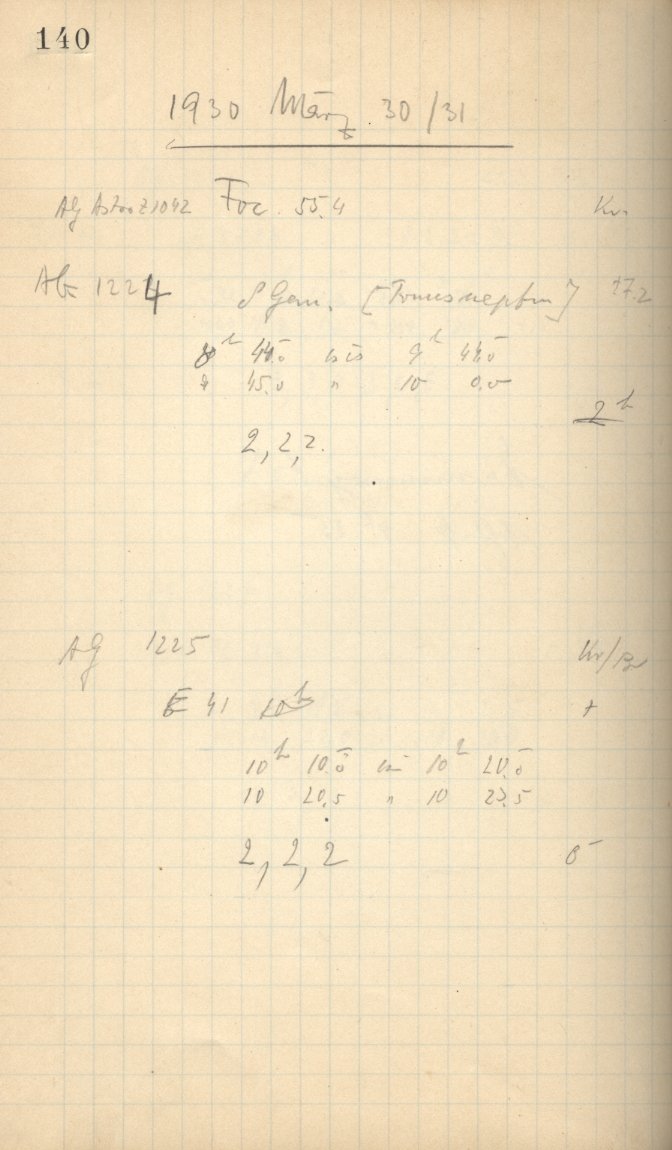 140
1930 März 30/31
Foc. 55.4 Kr.
AG 1224 δ Gem. [Transneptun] 17.2
44.0 bis 9h 44.0
45.0 " 10 0.0
2h
2, 2, 2.
AG 1225 Kr/
E 41 +
10h 10.0 bis 10h 20.0
10 20.5 " 10 23.5
2, 2, 2